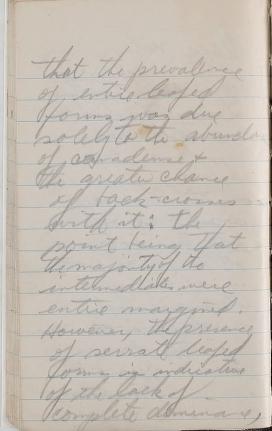 that the prevalence
of entire leafed
forms was due
solely to the abunda
of canadense &
the greater chance
of back-crosses
with it; the
point being that
the majority of the
intermediates were
entire margined.
However, the presence
of serrate leafed
forms is indicative
of the lack of
complete dominance,